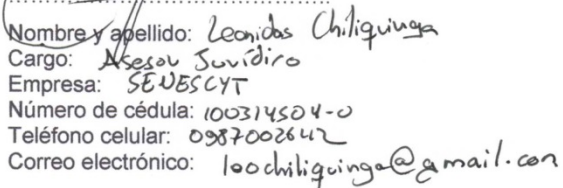 Nombre y apellido: Leonidas Chiliquinga
Cargo: Asesor Jurídico
Empresa: SENESCYT
Número de cédula: 100314504-0
Teléfono celular: 0987002642
Correo electrónico: leochiliquinga@gmail.com